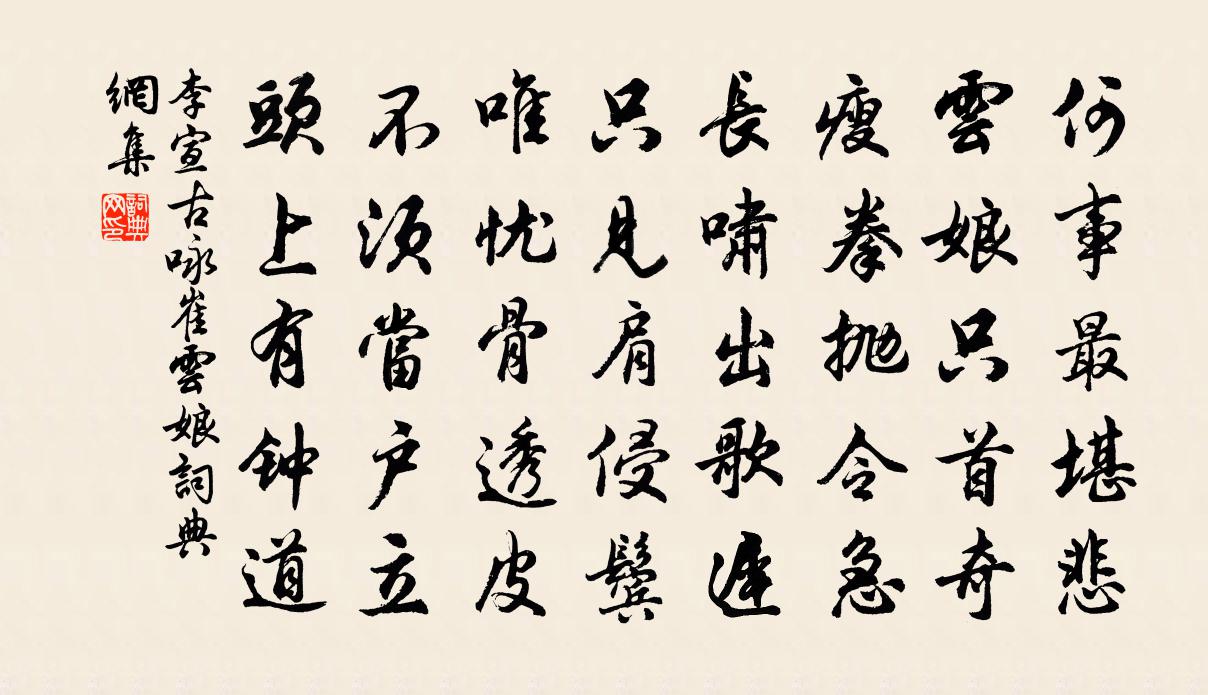 何事最堪悲
雲娘只首奇
瘦拳抛令急
長嘯出歌遲
只見肩侵鬢
唯忧骨透皮
不須當户立
頭上有钟道
李宣古咏崔雲娘詞典
網集
詞典
网印